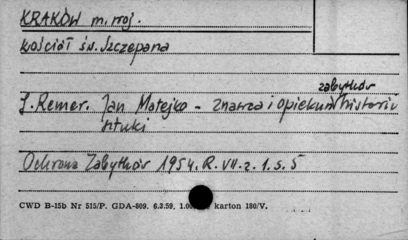 KRAKÓW m. woj.
kościół św. Szczepana
zabytków
J. Remer. Jan Matejko - znawca i opiekun historii
sztuki
Ochrona Zabytków 1954. R. VII. z. 1. s. 5
CWD B-15b Nr 515/P. GDA-809. 6.3.59. karton 180/V.